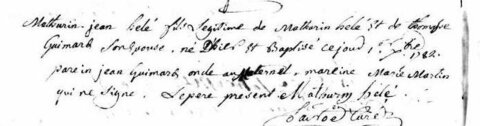 Mathurin jean hélé fils Legitime de Mathurin hélé Et de
Guimard Son Epouse, né D'hier Et Baptisé ce jour 1er 1782
parein jean Guimard oncle maternel, mareine Marie Martin
qui ne Signe. Le pere present Mathurin hélé